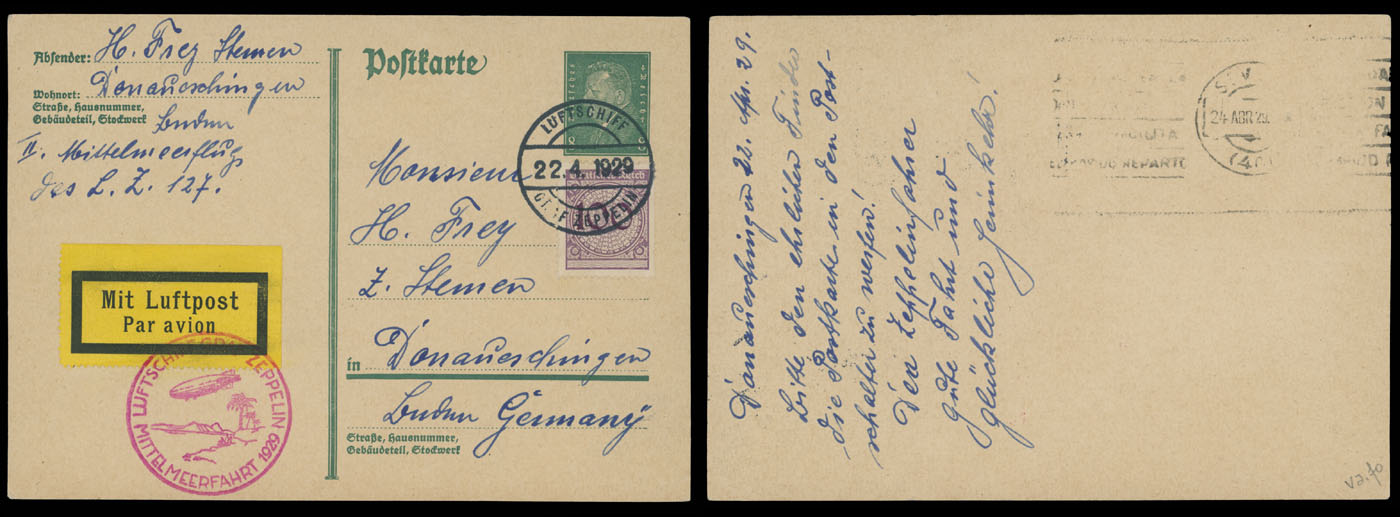 Absender: H. Frey Stemen
Wohnort: Donaueschingen
Straße, Hausnummer,
Gebäudeteil, Stockwerk
Baden
II. Mittelmeerflug
des L. Z. 127.
Mit Luftpost
Par avion
LUFTSCHIFF GRAF ZEPPELIN
MITTELMEERFAHRT 1929
Postkarte
LUFTSCHIFF
22.4.1929
GRAF ZEPPELIN
Deutsches Reich
10
Monsieur
H. Frey
Z. Stemen
in Donaueschingen
Baden Germany
Straße, Hausnummer,
Gebäudeteil, Stockwerk
Donaueschingen 22. Apr. 29.
Bitte den ehrlichen Finder
die Postkarte in den Post-
schalter zu werfen!
Den Zeppelinfahrer
Gute Fahrt und
glückliche Heimkehr!
24 ABR 29
REPARTO
va. 70